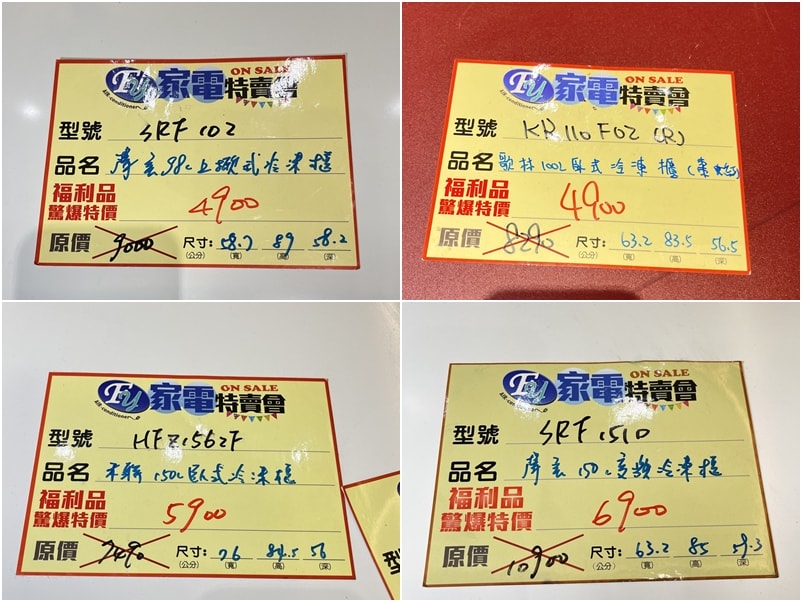 FU 家電特賣會 ON SALE
Air-conditioner
型號 SRF 102
品名 聲寶98L上掀式冷凍櫃
福利品
驚爆特價 4900
原價 9000 尺寸: 58.7 89 58.2
(公分) (寬) (高) (深)
FU 家電特賣會 ON SALE
Air-conditioner
型號 KR110F02 (R)
品名 歌林100L臥式冷凍櫃
福利品
驚爆特價 4900
原價 8290 尺寸: 63.2 83.5 56.5
(公分) (寬) (高) (深)
FU 家電特賣會 ON SALE
Air-conditioner
型號 HFZ1562F
品名 禾聯150L臥式冷凍櫃
福利品
驚爆特價 5900
原價 7490 尺寸: 76 84.5 56
(公分) (寬) (高) (深)
FU 家電特賣會 ON SALE
Air-conditioner
型號 SRF 1510
品名 聲寶150L變頻冷凍櫃
福利品
驚爆特價 6900
原價 10900 尺寸: 63.2 85 59.3
(公分) (寬) (高) (深)